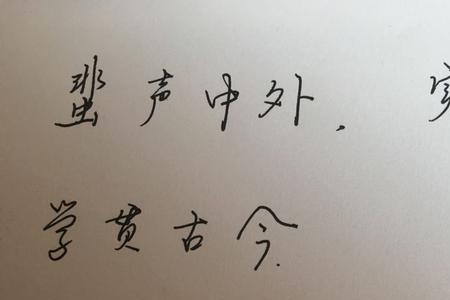 蜚声中外,
学贯古今